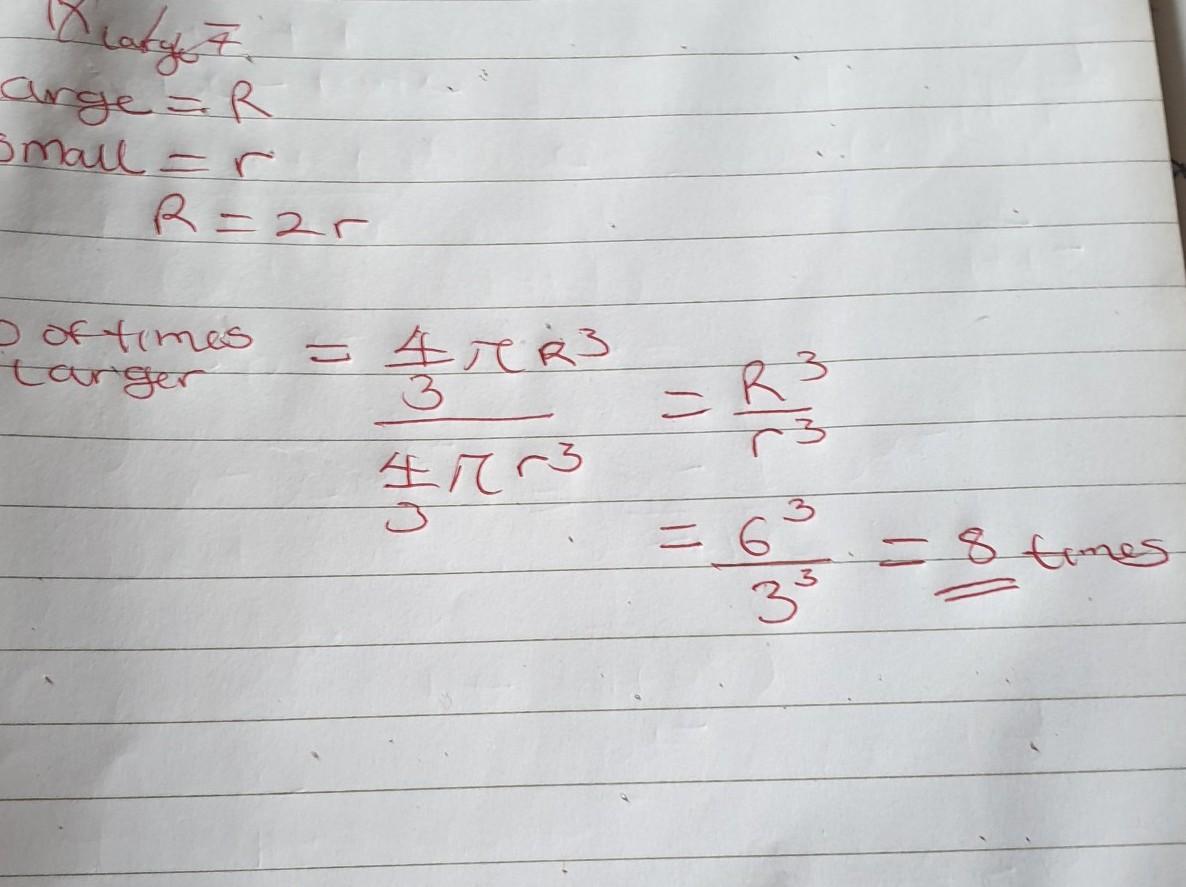 arge = R
small = r
R = 2r
of times larger = 4/3 πR³ / 4/3 πr³ = R³/r³
= 6³/3³ = 8 times